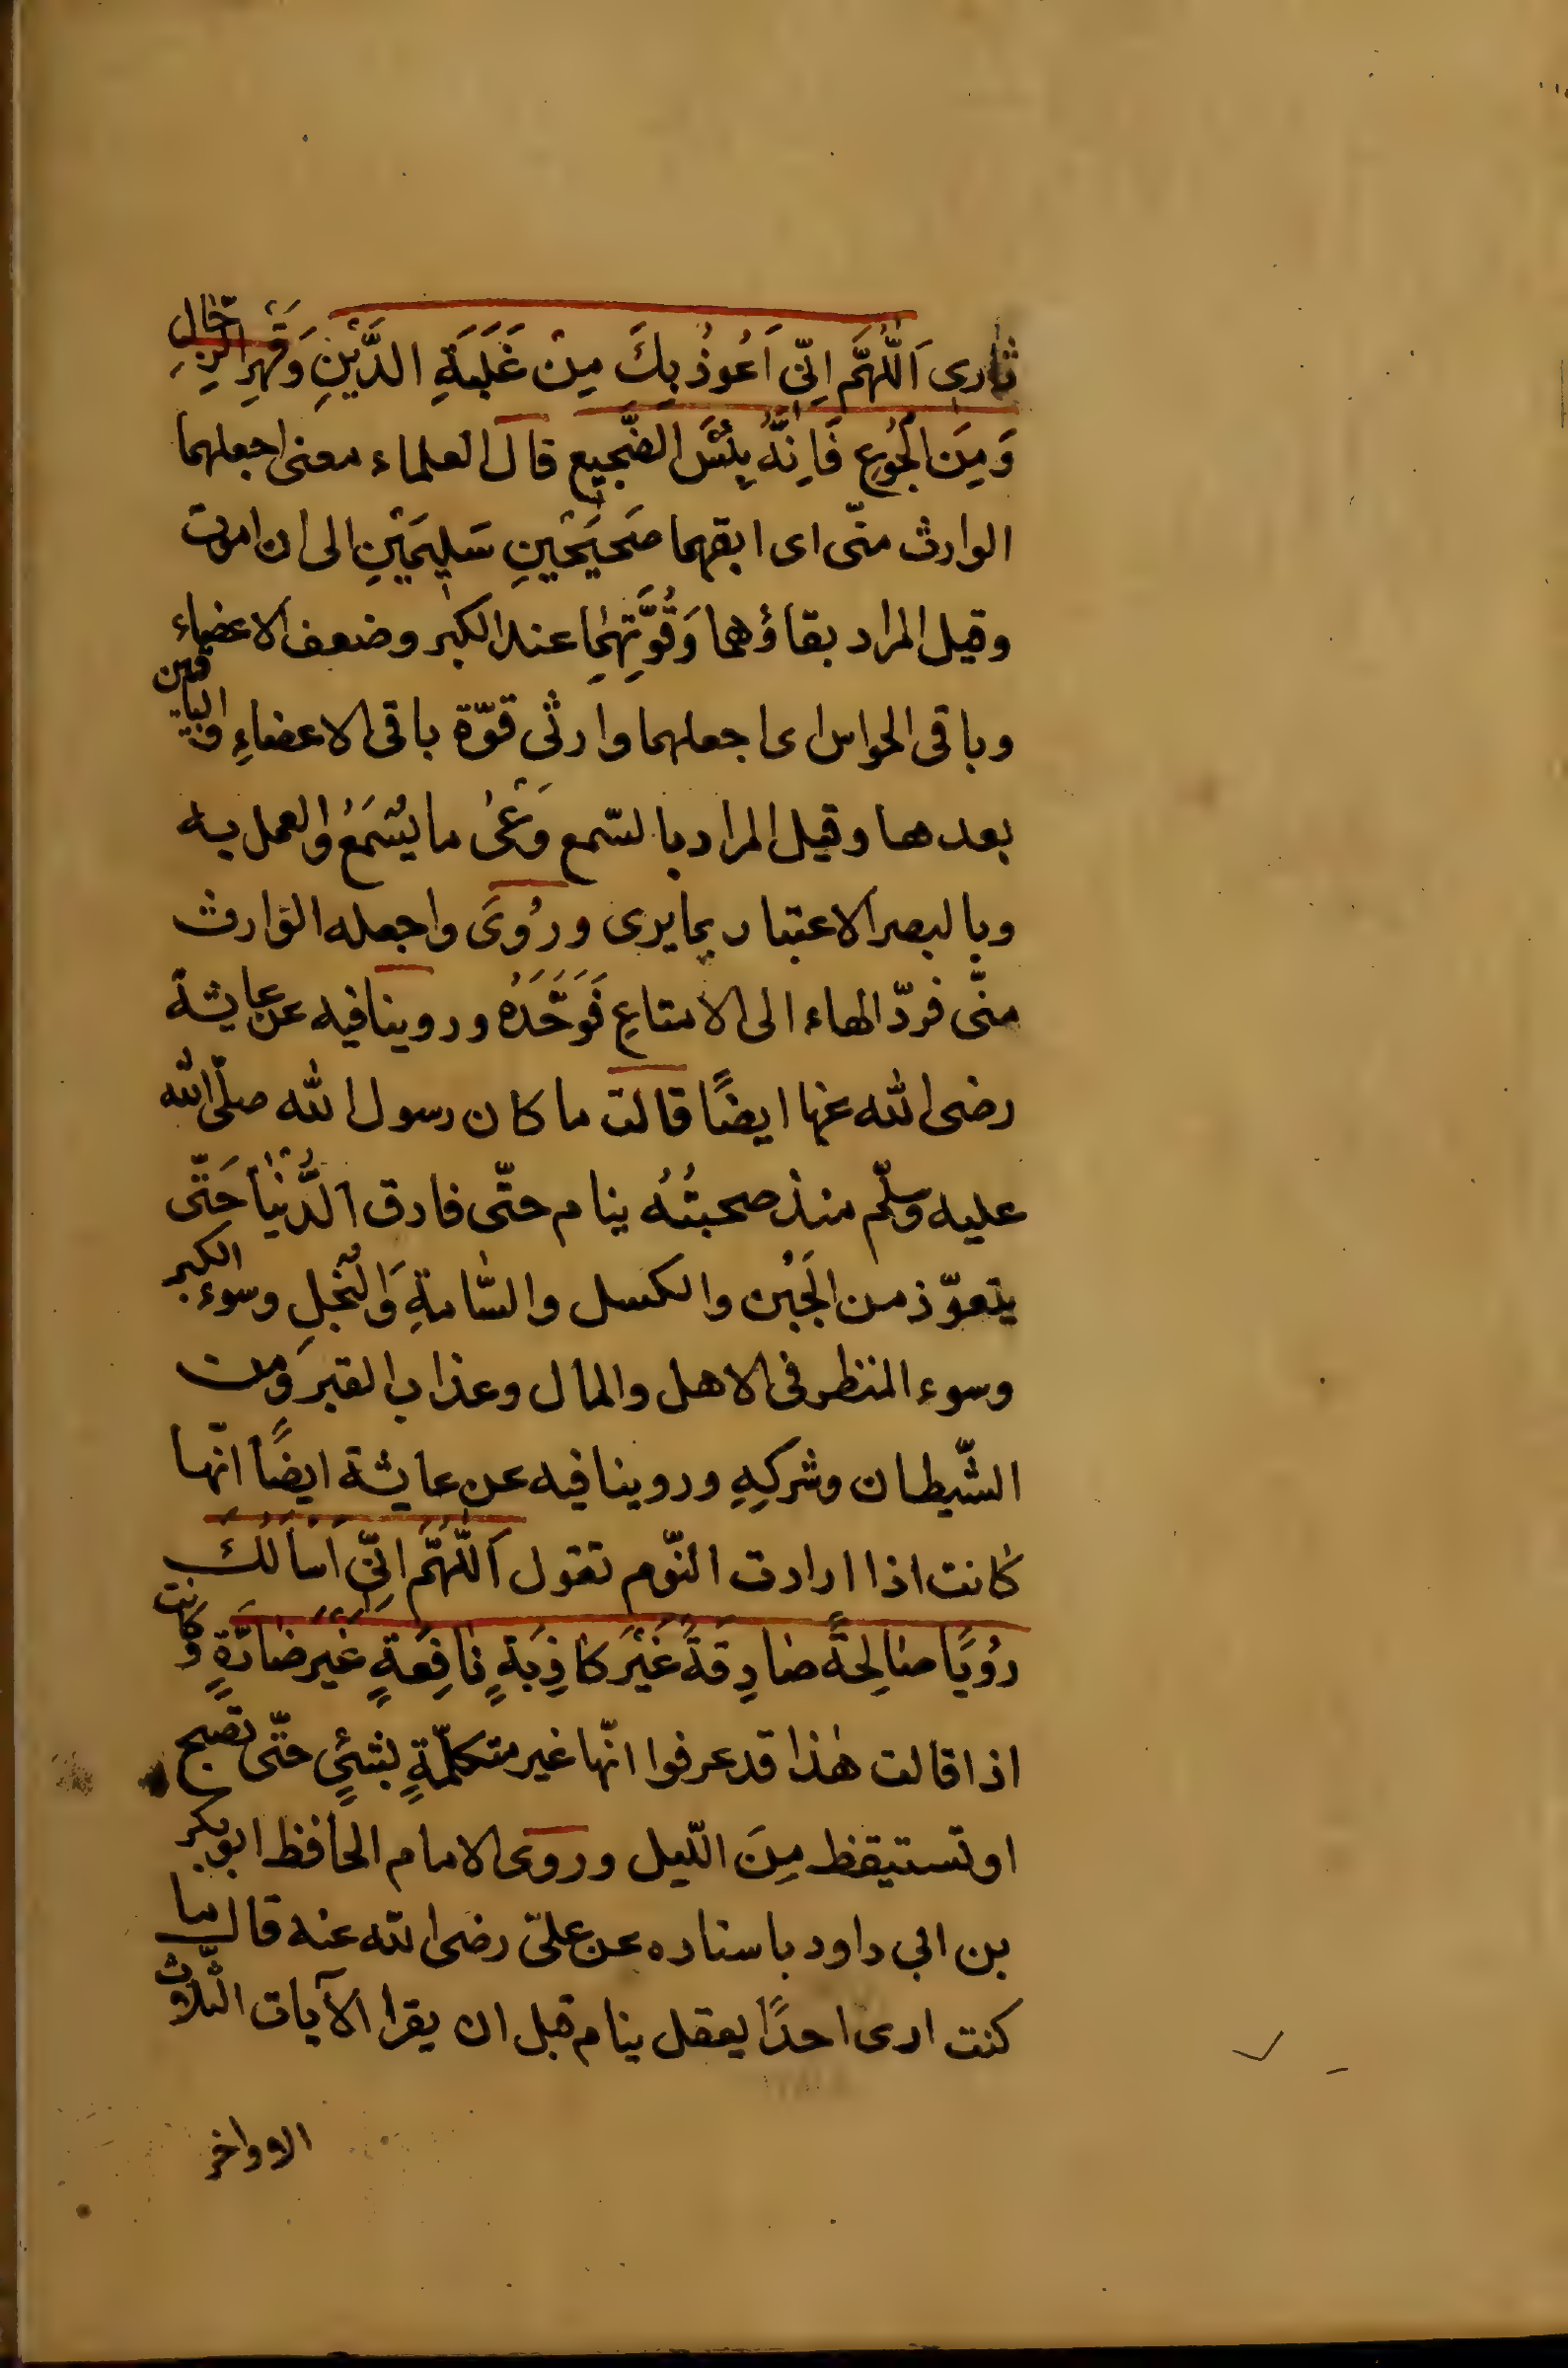 ثارى اَللّٰهُمَّ اِنّى اَعُوذُ بِكَ مِنْ غَلَبَةِ الدَّيْنِ وَقَهْرِ الرِّجَالِ
وَمِنَ الْجُوعِ فَاِنَّهُ بِئْسَ الضَّجِيعِ قال العلماء معنى اجعلهما
الوارث منّى اى ابقهما صَحيحَيْنِ سَلِيمَيْنِ الى ان اموت
وقيل المراد بقاؤهما وَقُوَّتِهِمَا عند الكبر وضعف الاعضاء
وباقى الحواس اى اجعلهما وارثى قوّة باقى الاعضاءِ والباقين
بعدها وقيل المراد بالسّمع وَعْىُ ما يُسْمَعُ والعمل به
وبالبصر الاعتبار بما يرى ورُوىَ واجعله الوارث
منّى فردّ الهاء الى الامتاعِ فَوَحَّدَهُ وروينا فيه عن عايشة
رضى الله عنها ايضًا قالت ما كان رسول الله صلّى الله
عليه وسلّم منذ صحبتُهُ ينام حتّى فارق الدُّنْيَا حَتّى
يتعوّذ من الجُبْن والكسل والسّامةِ وَالْبُخْلِ وسوء الكبر
وسوء المنظر فى الاهل والمال وعذاب القبر ومن
الشّيطان وشركِهِ وروينا فيه عن عايشة ايضًا انّها
كانت اذا ارادت النّوم تقول اَللّٰهُمَّ اِنّى اَسْاَلُكَ
رُوْيَا صَالِحَةً صَادِقَةً غَيْرَ كَاذِبَةٍ نَافِعَةٍ غَيْرَ ضَارَّةٍ وكانت
اذا قالت هٰذا قد عرفوا انّها غير متكلّمةٍ بشئٍ حتّى تصبح
او تستيقظ مِنَ اللّيل وروى الامام الحافظ ابو بكر
بن ابي داود باسناده عن علىّ رضى الله عنه قال ما
كنت ارى احدًا يعقل ينام قبل ان يقرا الآيات الثّلاث
الاواخر